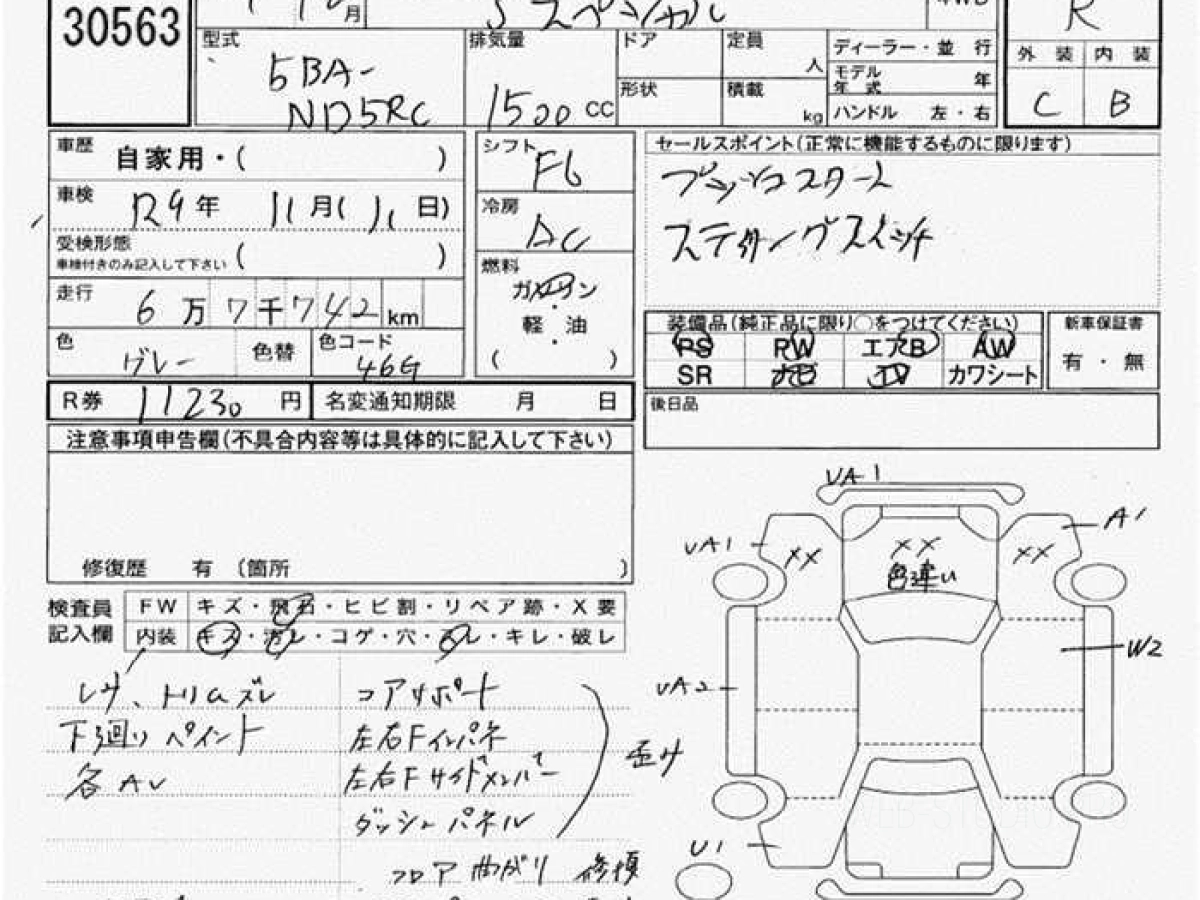 30563
月
Sスペシャル
型式
5BA-
ND5RC
排気量
1500 CC
ドア
形状
定員
人
積載
kg
ディーラー・並 行
モデル年式 年
ハンドル 左・右
R
外装 内装
C B
車歴
自家用・( )
車検
R9年 11月(11日)
受検形態
車検付きのみ記入して下さい ( )
走行
6万7千742km
色
グレー
色替
色コード
46G
シフト
F6
冷房
AC
燃料
ガソリン
・
軽 油
・
( )
セールスポイント(正常に機能するものに限ります)
プッシュスタート
ステアリングスイッチ
装備品(純正品に限り○をつけてください)
PS PW エアB AW
SR ナビ TV カワシート
新車保証書
有・無
R券 11230円
名変通知期限 月 日
後日品
注意事項申告欄(不具合内容等は具体的に記入して下さい)
修復歴 有 (箇所 )
検査員
記入欄
FW キズ・飛石・ヒビ割・リペア跡・X要
内装 キズ・汚レ・コゲ・穴・スレ・キレ・破レ
シワ、トリムズレ
下廻りペイント
各AU
コアサポート
左右Fインパネ
左右Fサイドメンバー
ダッシュパネル
歪み
フロア曲がり 修復
UA1
UA1
XX
XX
色違い
XX
A1
W2
UA2
U1